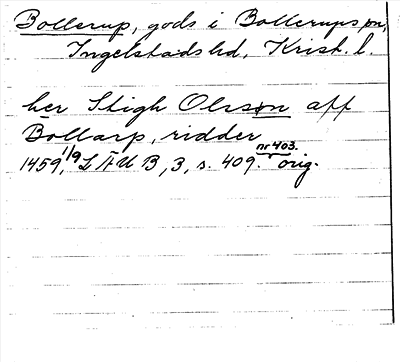 Bollerup, gods i Bollerups sn,
Ingelstads hd, Krist. l.
her Stigh Olsson aff
Bollarp, ridder
1459 1/9 LÄUB, 3, s. 409. nr 403. orig.